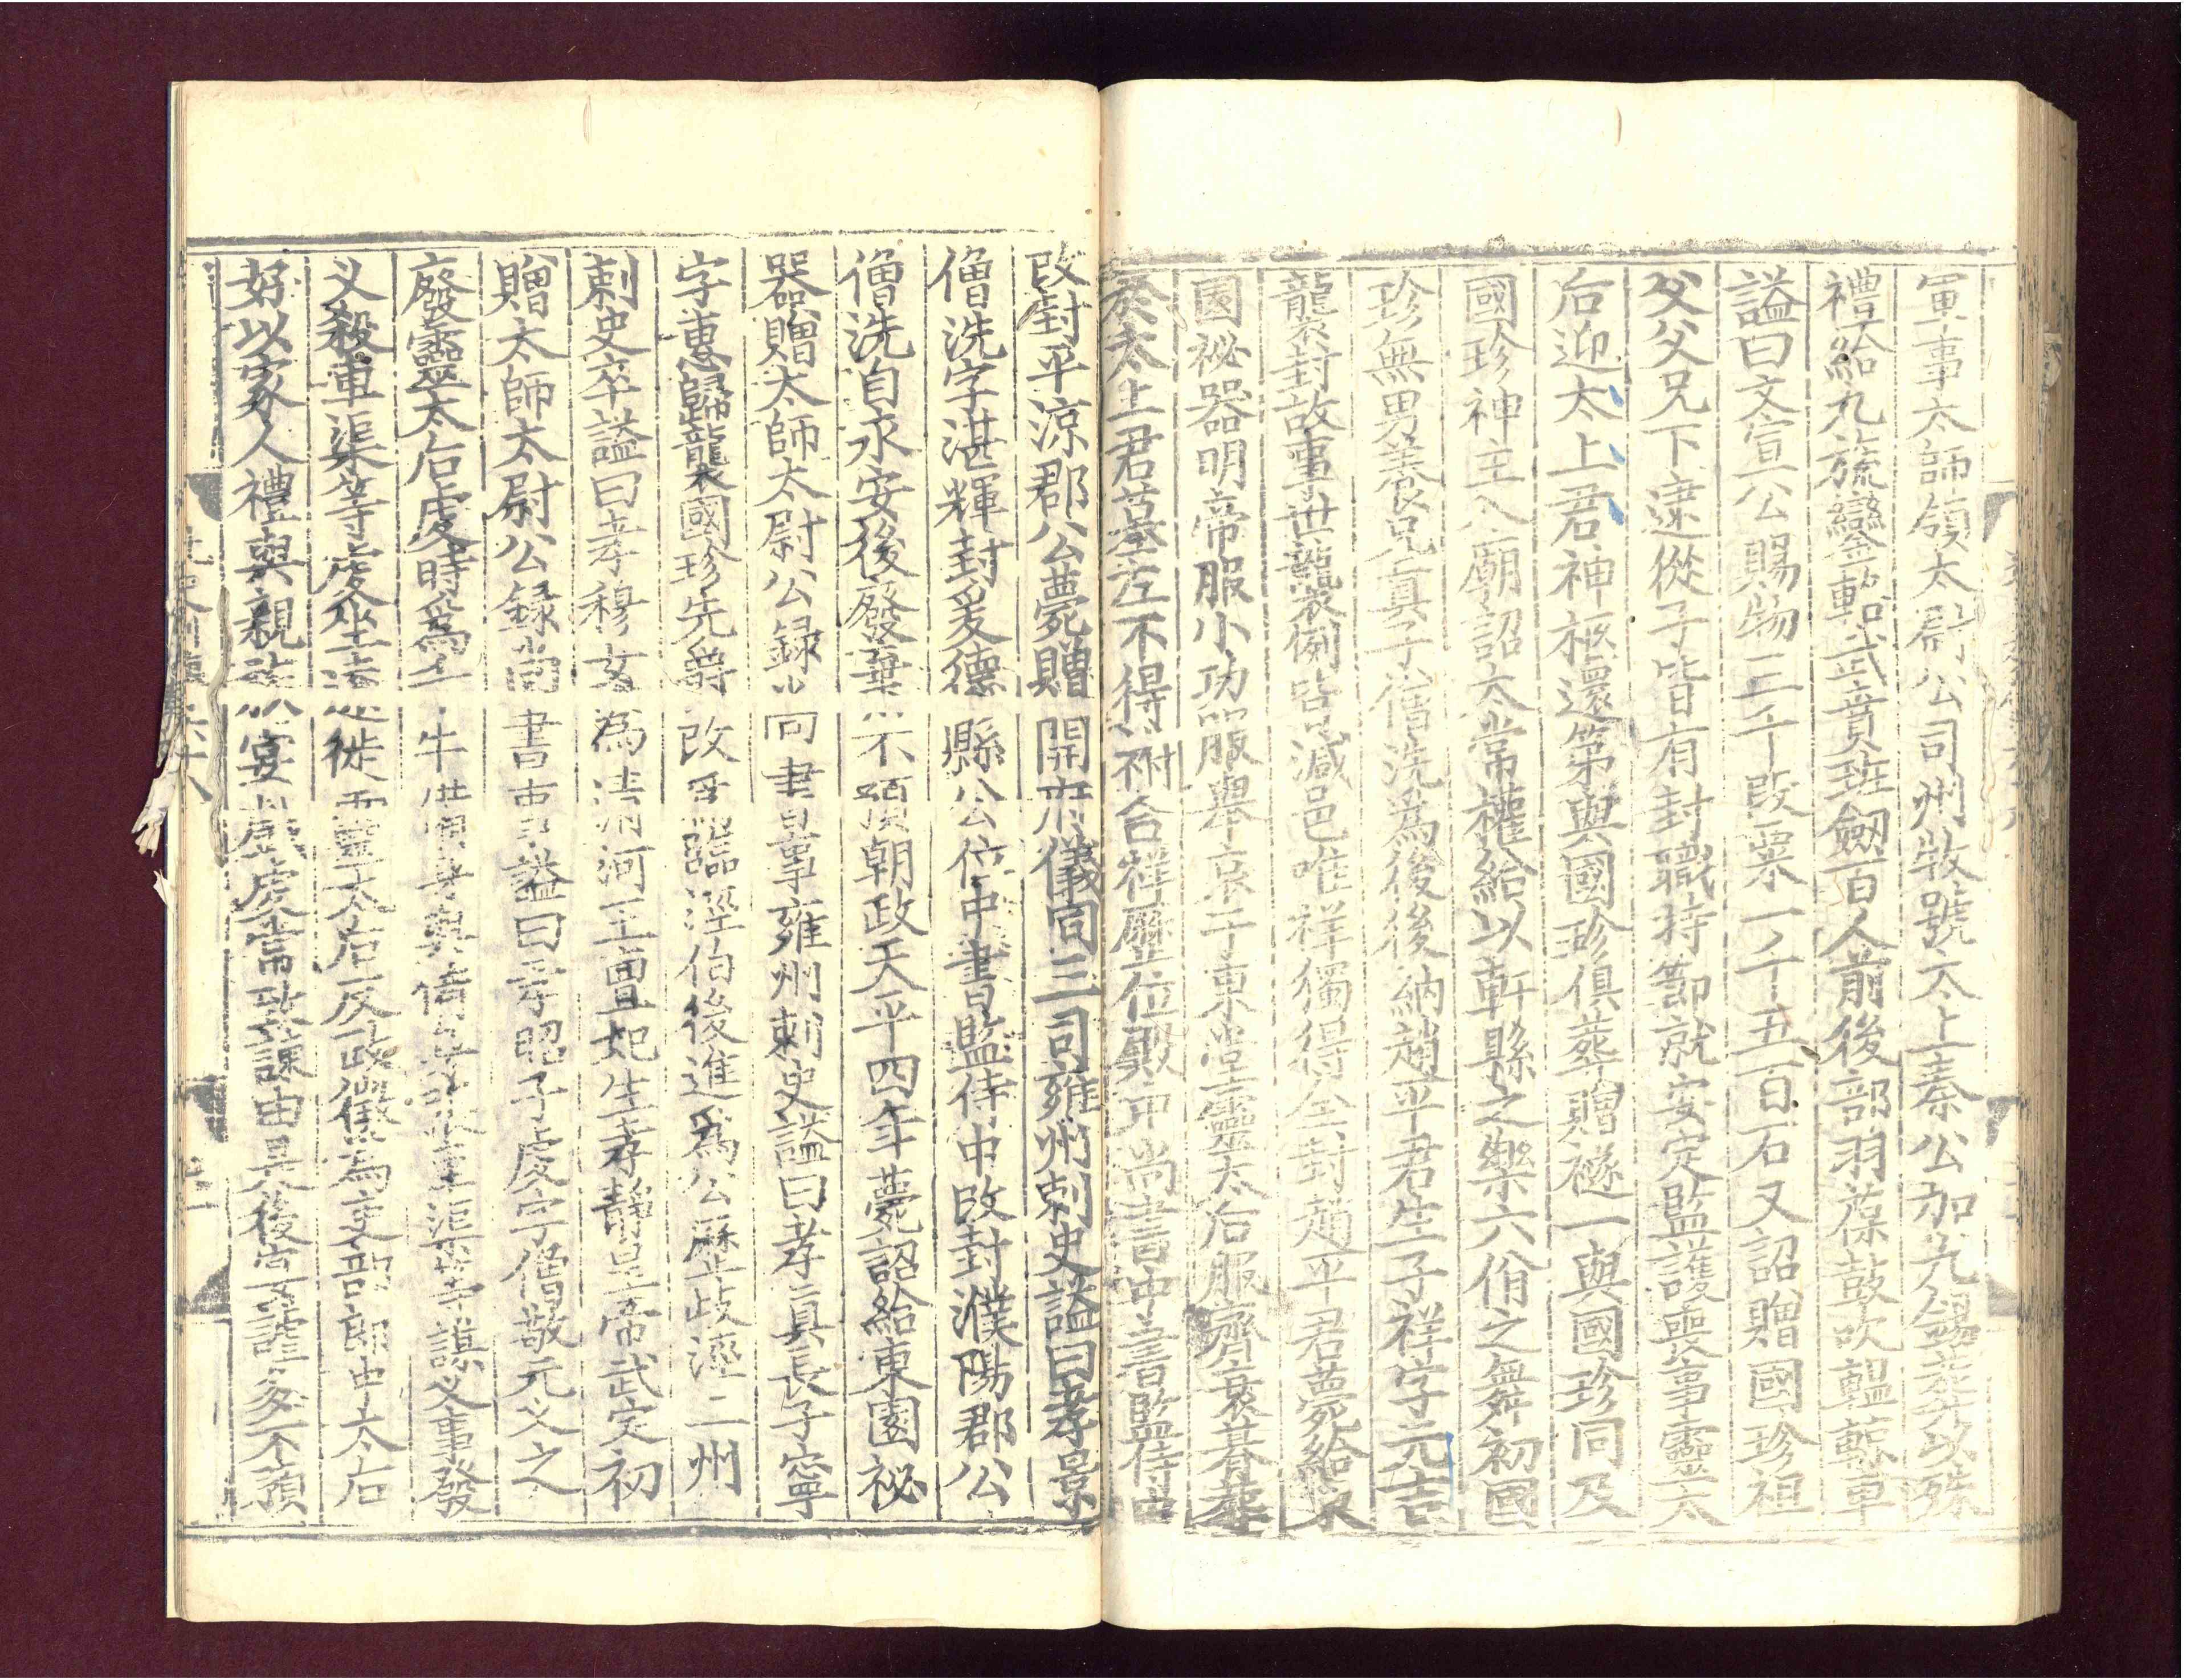 軍事太師領太尉公司州牧號太上秦公加九錫葬以殊
禮給九旒鑾輅武賁班劒百人前後部羽葆鼓吹轀輬車
諡曰文宣公賜物三千段粟一千五百石又詔贈國珍祖
父父兄下逮從子皆有封職持節就安定監護喪事靈太
后迎太上君神柩還第與國珍俱葬贈襚一與國珍同及
國珍神主入廟詔太常權給以軒縣之樂六佾之舞初國
珍無男養兄真子僧洗為後後納趙平君生子祥字元吉
襲封故事世襲例皆減邑唯祥獨得全封趙平君薨給東
園祕器明帝服小功服舉哀于東堂靈太后服齊衰朞葬
於太上君墓左不得祔合祥歷位殿中尚書中書監侍中
改封平涼郡公薨贈開府儀同三司雍州刺史諡曰孝景
僧洗字湛輝封爰德縣公位中書監侍中改封濮陽郡公
僧洗自永安後廢棄不預朝政天平四年薨詔給東園祕
器贈太師太尉公録尚書事雍州刺史諡曰孝真長子寧
字惠歸襲國珍先爵改為臨涇伯後進為公歷岐涇二州
刺史卒諡曰孝穆女為清河王亶妃生孝靜皇帝武定初
贈太師太尉公録尚書事諡曰孝昭子虔字僧敬元义之
廢靈太后虔時為千牛備身與備身張車渠等謀义事發
义殺車渠等虔坐遠徙靈太后反政徵為吏部郎中太后
好以家人禮與親族宴戲虔常致諫由是後宴謔多不預